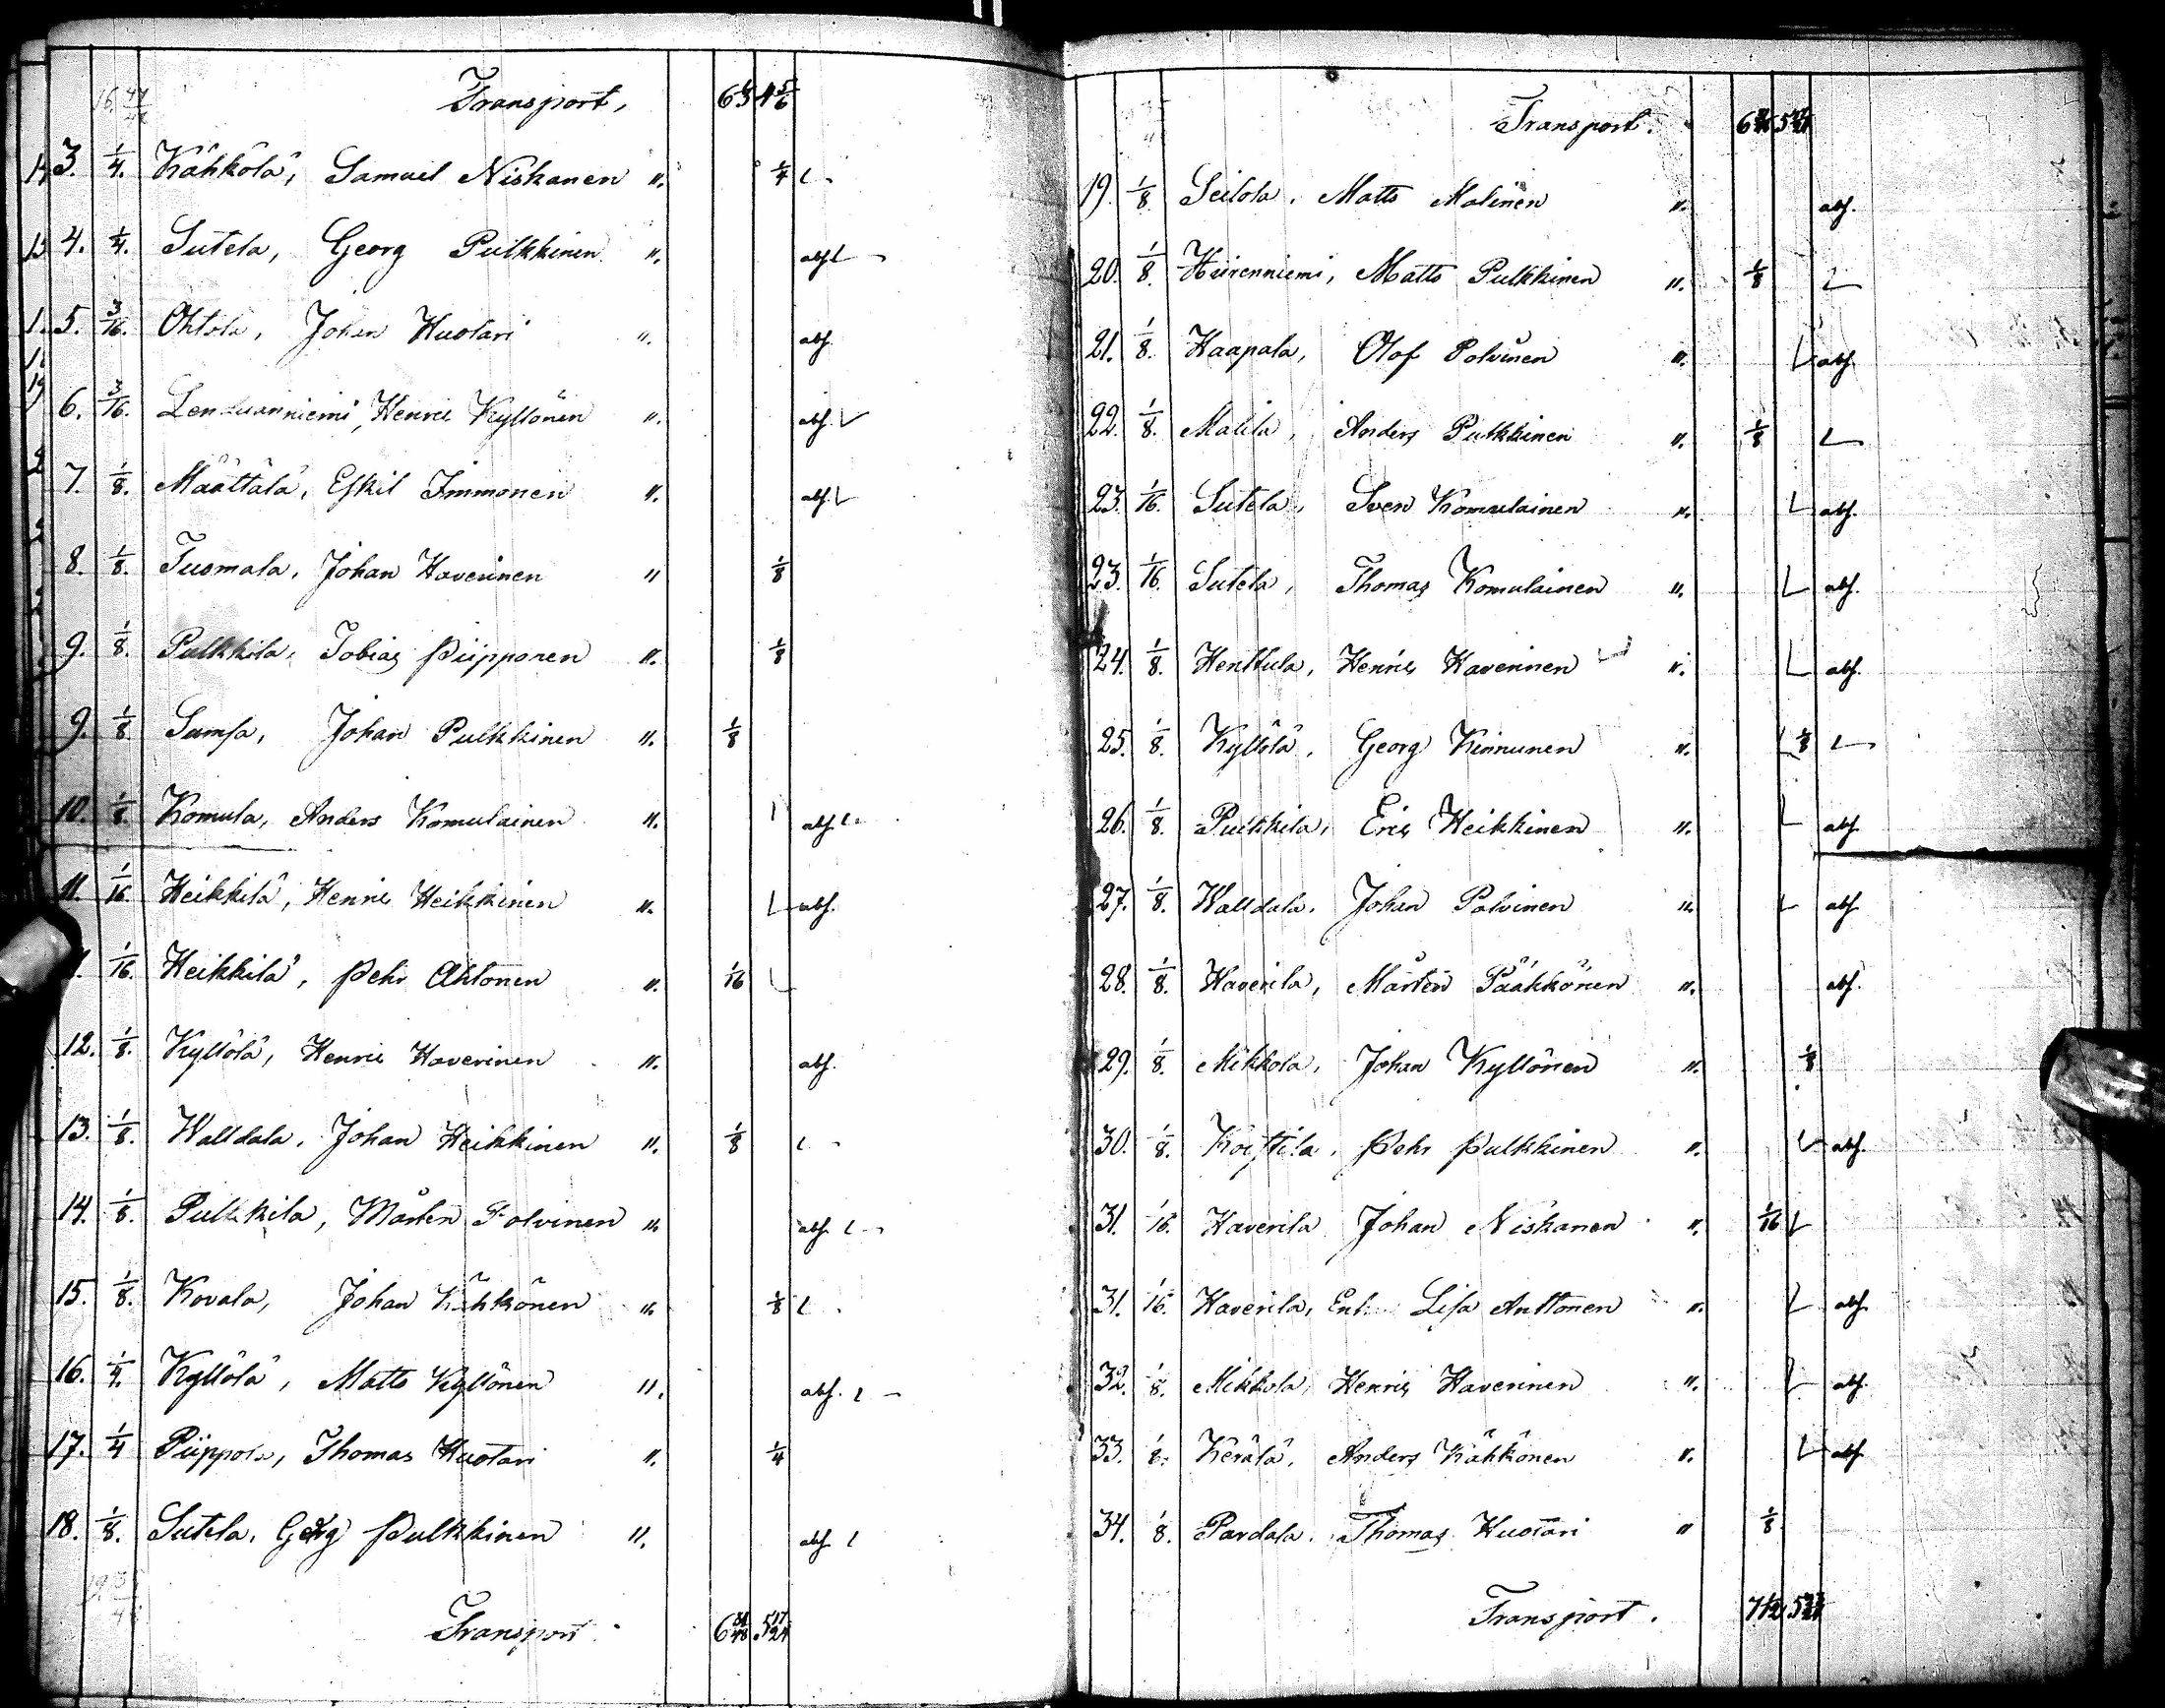 Transport,
3. 1/4. Kähkölä, Samuel Niskanen ". 1/4
4. 1/4. Sutela, Georg Pulkkinen ". abs.
5. 3/16. Ohtola, Johan Huotari ". abs.
6. 3/16. Henric Kyllönen ". abs.
7. 1/8. Määttälä, Eskil Immonen ". abs.
8. 1/8. Tuomala, Johan Haverinen " 1/8
9. 1/8. Pulkkila, Tobias Piipponen ". 1/8
9. 1/8. Sumsa, Johan Pulkkinen ". 1/8
10. 1/8. Komula, Anders Komulainen ". abs.
11. 1/16. Heikkilä, Henric Heikkinen ". abs.
1/16. Heikkilä, Pehr Ahtonen ". 1/16
12. 1/8. Kyllölä, Henric Haverinen ". abs.
13. 1/8. Walldala, Johan Heikkinen ". 1/8
14. 1/8. Pulkkila, Mårten Polvinen ". abs.
15. 1/8. Kovala, Johan Kähkönen ". 1/8
16. 1/4. Kyllölä, Matts Kyllönen ". abs.
17. 1/4 Piippola, Thomas Huotari ". 1/4
18. 1/8. Sutela, Georg Pulkkinen ". abs.
Transport 5 17/24
Transport.
19. 1/8. Seilola, Matts Malinen ". abs.
20. 1/8. Hiirenniemi, Matts Pulkkinen ". 1/8
21. 1/8. Haapala, Olof Polvinen ". abs.
22. 1/8. Malila, Anders Pulkkinen ". 1/8
23. 1/16. Sutela, Sven Komulainen ". abs.
23. 1/16. Sutela, Thomas Komulainen ". abs.
24. 1/8. Henttula, Henric Haverinen ". abs.
25. 1/8. Kyllölä, Georg Kinnunen ". 1/8
26. 1/8. Pulkkila, Eric Heikkinen ". abs.
27. 1/8. Walldala, Johan Polvinen ". abs
28. 1/8. Haverila, Mårten Pääkkönen ". abs.
29. 1/8. Mikkola, Johan Kyllönen ". 1/8
30. 1/8. Koistila, Pehr Pulkkinen ". abs.
31. 1/16. Haverila Johan Niskanen ". 1/16
31. 1/16. Haverila, Enk. Lisa Anttonen ". abs.
32. 1/8. Mikkola, Henric Haverinen ". abs.
33. 1/8. Kerälä, Anders Kähkönen ". abs.
34. 1/8. Pardala. Thomas Huotari " 1/8
Transport.